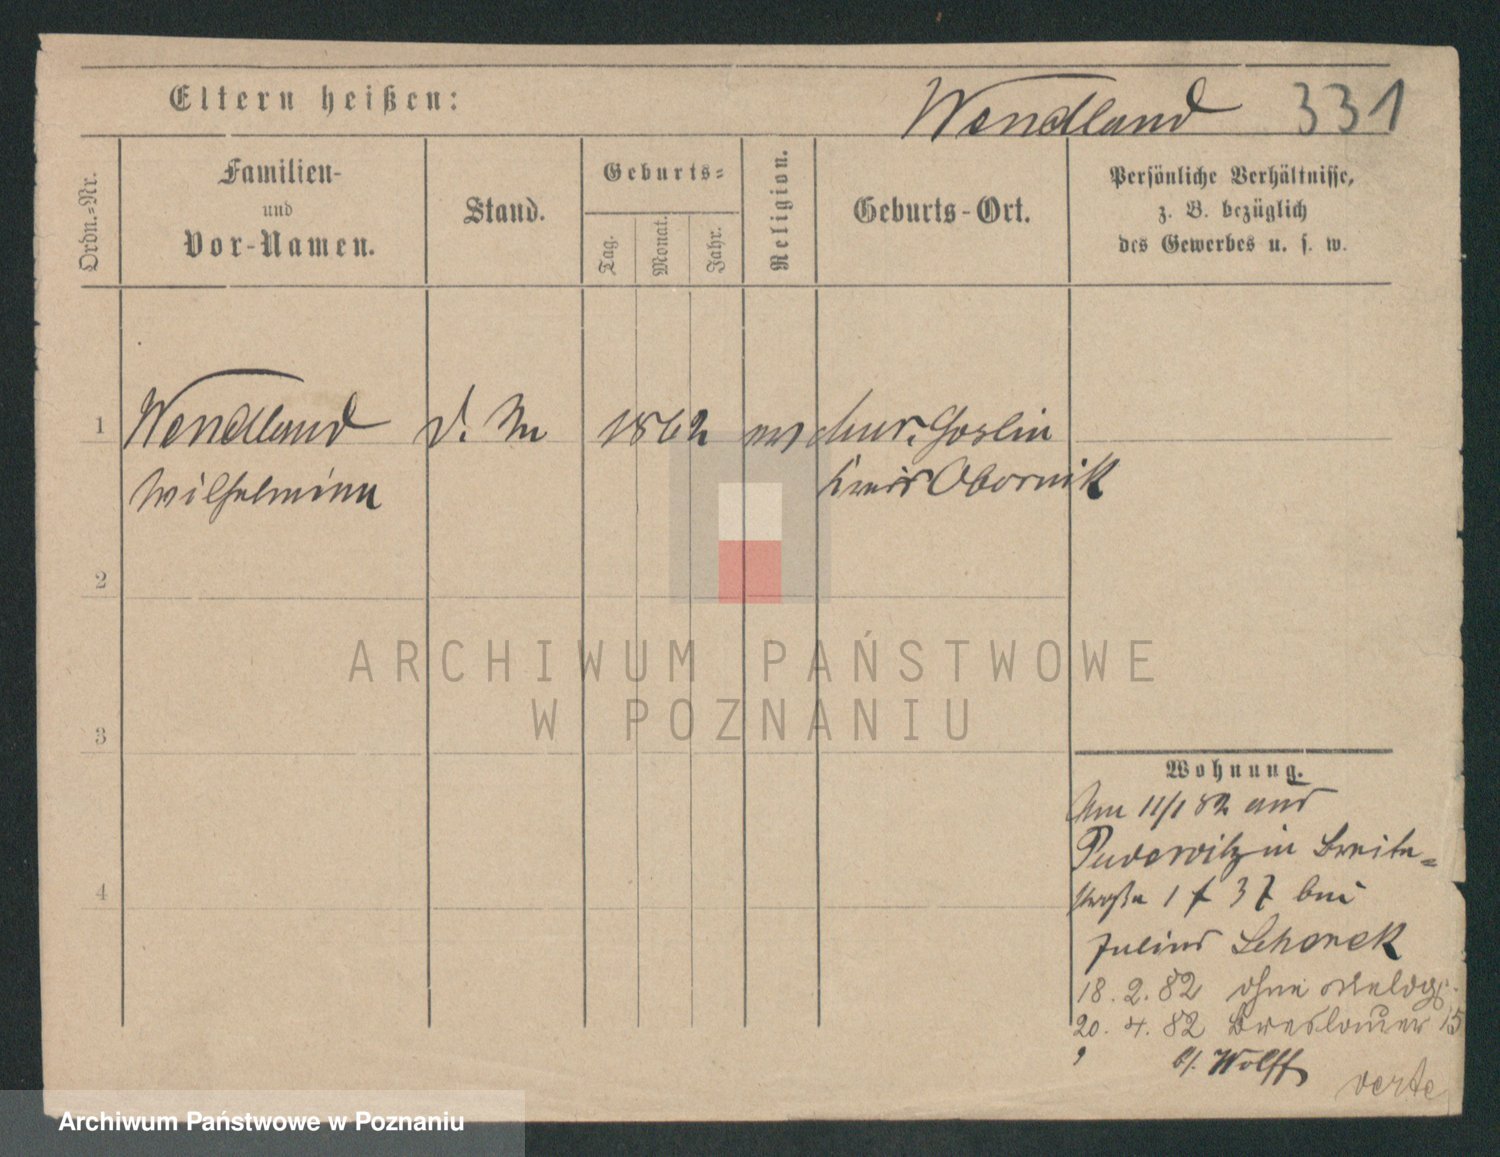 Eltern heißen:
Wendland 331
Ordn.-Nr.
Familien-
und
Vor-Namen.
Stand.
Geburts-
Tag.
Monat.
Jahr.
Religion.
Geburts-Ort.
Persönliche Verhältnisse,
z. B. bezüglich
des Gewerbes u. s. w.
1 Wendland 1862 Mur. Goslin
Wilhelmine Kreis Obornik
2
3
4
ARCHIWUM PAŃSTWOWE
W POZNANIU
Wohnung.
Am 11/1 82 aus
Pudewitz in Breite-
straße 1 37 bei
Julius Schenek
18. 2. 82 ohne Meldg.
20. 4. 82 Breslauer 15
b/. Wolff
verte
Archiwum Państwowe w Poznaniu